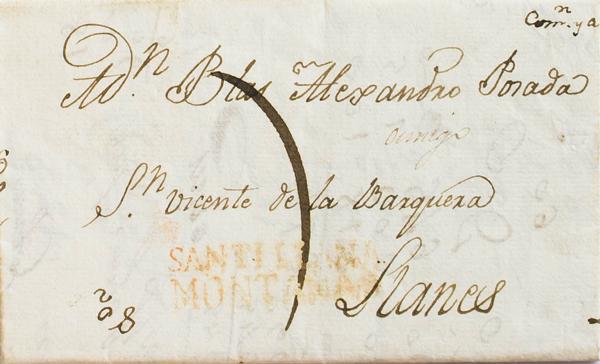 A D.n Blas Alexandro Posada
S.n Vicente de la Barquera
SANTILLANA
MONTAÑAS
Llanes